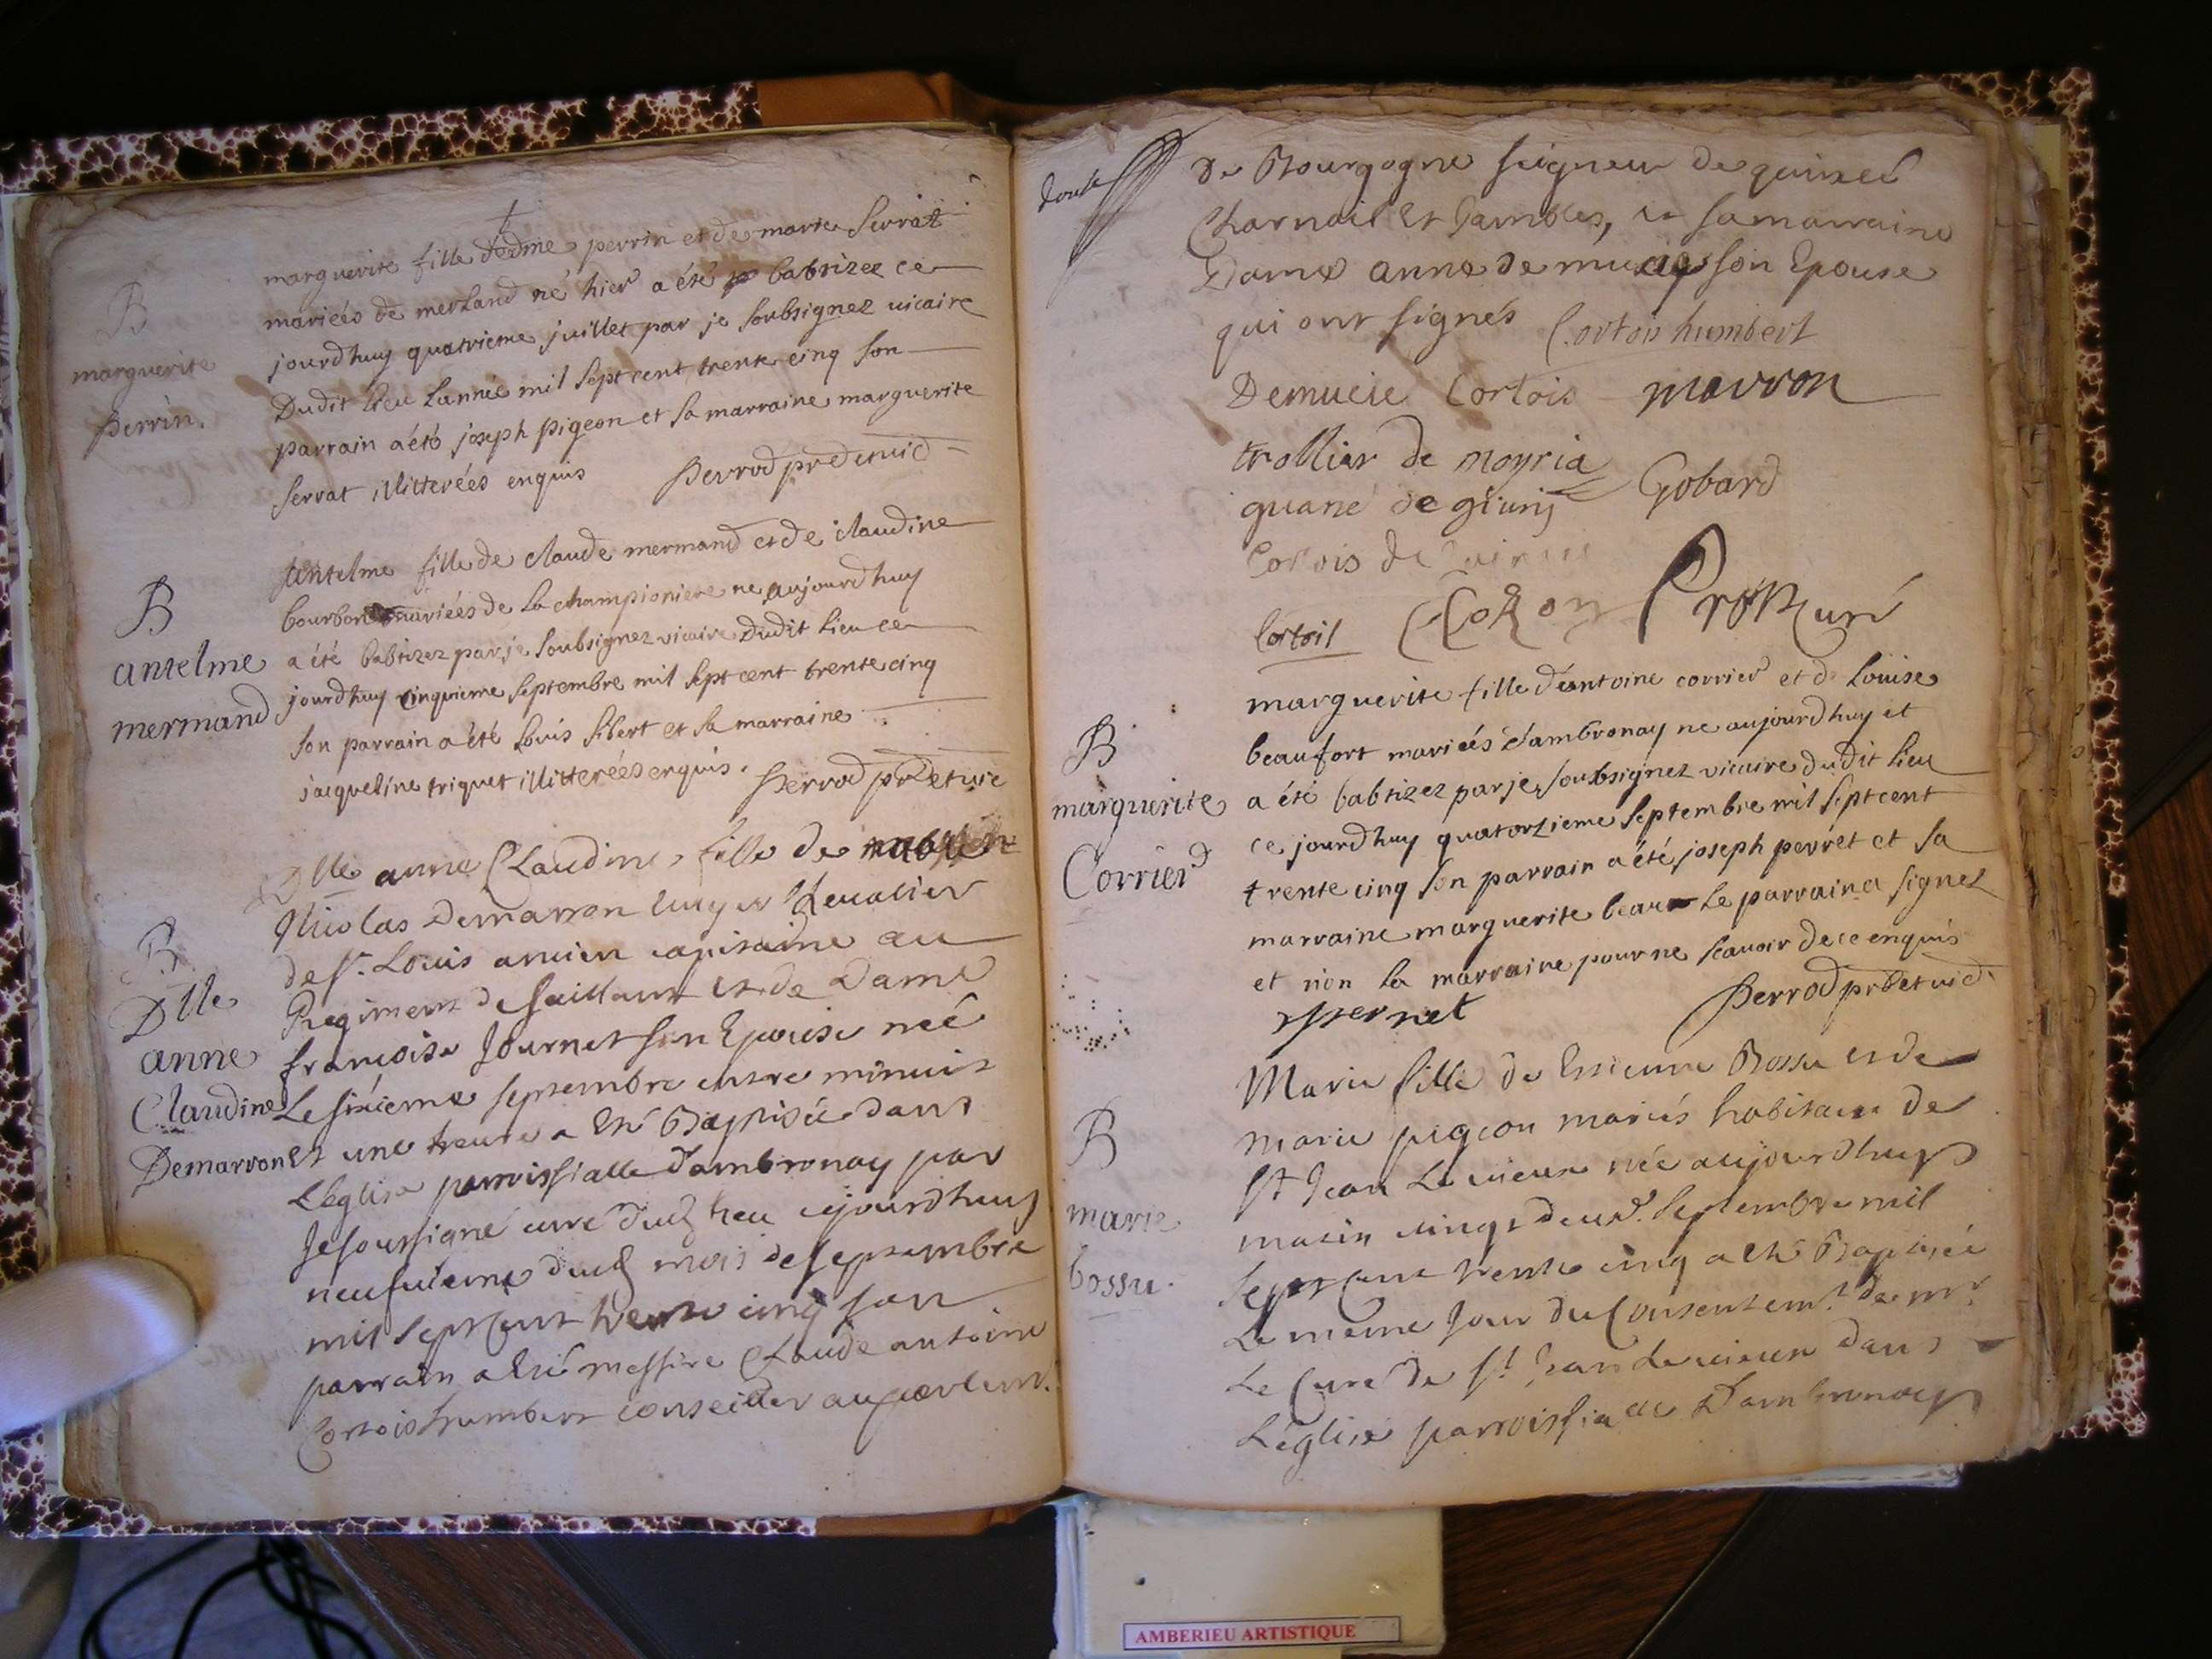 B
marguerite
perrin.
marguerite fille dedme perrin et de marie Serrat
mariées de merland né hier a été babtizee ce
jourdhuy quatrieme juillet par je soubsignez vicaire
Dudit lieu lannée mil sept cent trente cinq son
parrain a été joseph pigeon et sa marraine marguerite
serrat illitterées enquis perrod pr et vic
B
antelme
mermand
Antelme fille de claude mermand et de claudine
bourbon mariées de la championiere ne aujourdhuy
a été babtizez par je soubsignez vicaire Dudit lieu ce
jourdhuy cinquieme septembre mil sept cent trente cinq
son parrain a été Louis sibert et sa marraine
jacqueline triquet illitterées enquis. perrod pr et vic
B
Dlle
anne
Claudine
Demarron
Dlle anne Claudine fille de
Nicolas Demarron Chevalier
de st. Louis ancien capitaine au
Regiment de et de Dame
francoise Journet son Epouse née
Le sixieme septembre entre minuit
et une heure a été Baptisée dans
L'eglise parroissialle d'ambronay par
Je soussigné curé dud lieu cejourdhuy
neufvieme dud mois de septembre
mil sept cent trente cinq son
parrain a été messire Claude antoine
Cortois humbert conseiller au parlem.
de Bourgogne seigneur de quincé
Charnoil et Jambles, et sa marraine
Dame anne de mucie son Epouse
qui ont signés Cortois humbert
Demucie Cortois marron
trollier de moyria
de giuri Gobard
Cortois de
Cortois Curé
B
marguerite
Corrier
marguerite fille d'antoine corrier et de Louise
beaufort mariées d'ambronay ne aujourdhuy et
a été babtizez par je soubsignez vicaire dudit lieu
ce jourdhuy quatorzieme septembre mil sept cent
trente cinq son parrain a été joseph perret et sa
marraine marguerite beau le parrain a signez
et non la marraine pour ne scavoir de ce enquis
perret perrod pr et vic
B
marie
bossu.
Marie fille de Estienne Bossu et de
marie pigeon mariés habitans de
st Jean Le vieux née aujourdhuy
matin vingt deux. septembre mil
sept cent trente cinq a été Baptisée
Le meme Jour du Consentemt. de mr.
Le Curé de st. Jean Le vieux dans
L'eglise parroissialle d'ambronay
AMBERIEU ARTISTIQUE